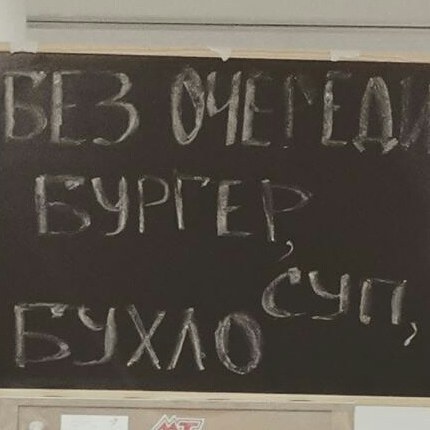 БЕЗ ОЧЕРЕДИ
БУРГЕР,
СУП,
БУХЛО